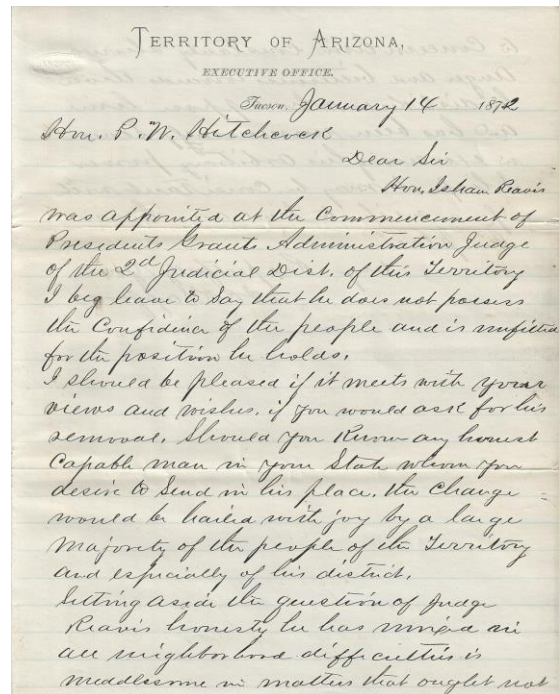 TERRITORY OF ARIZONA,
EXECUTIVE OFFICE.
Tucson, January 14 1872
Hon. P. W. Hitchcock
Dear Sir
Hon. Isham Reavis
was appointed at the Commencement of
Presidents Grants Administration Judge
of the 2d Judicial Dist. of this Territory
I beg leave to Say that he does not possess
the Confidence of the people and is unfitted
for the position he holds.
I should be pleased if it meets with your
views and wishes, if you would ask for his
removal. Should you Know any honest
Capable man in your State whom you
desire to Send in his place, the Change
would be hailed with joy by a large
Majority of the people of the Territory
and especially of his district.
Setting aside the question of Judge
Reavis honesty he has mixed in
all neighborhood difficulties is
meddlesome in matters that ought not